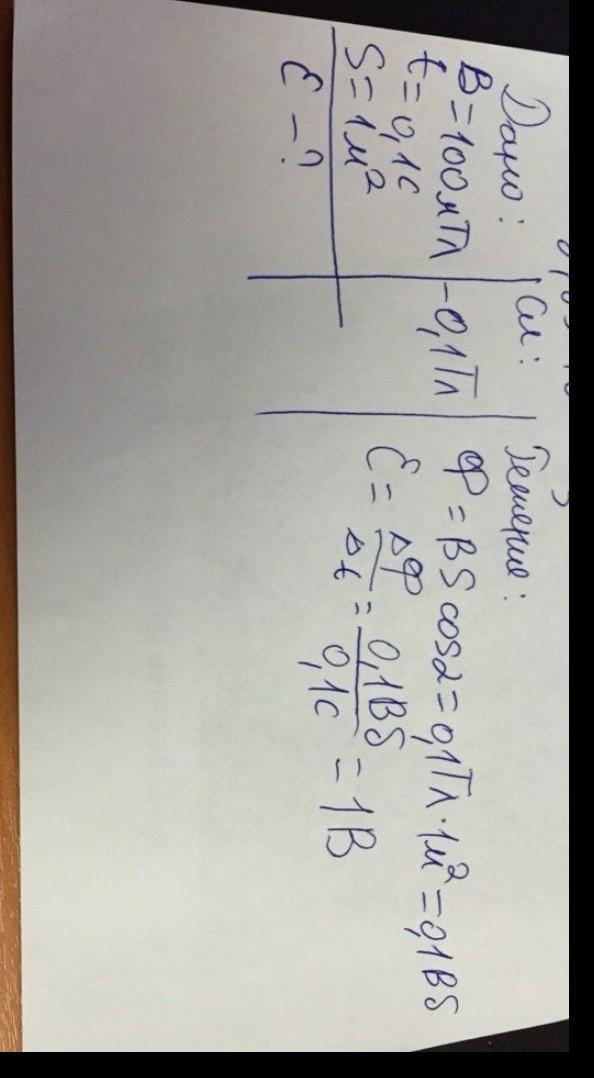 Дано:
B = 100 мТл
t = 0,1с
S = 1м²
ℰ - ?
Си:
- 0,1Тл
Решение:
Ф = BS cosα = 0,1Тл · 1м² = 0,1ВБ
ℰ = ΔФ/Δt = 0,1ВБ/0,1с = 1В